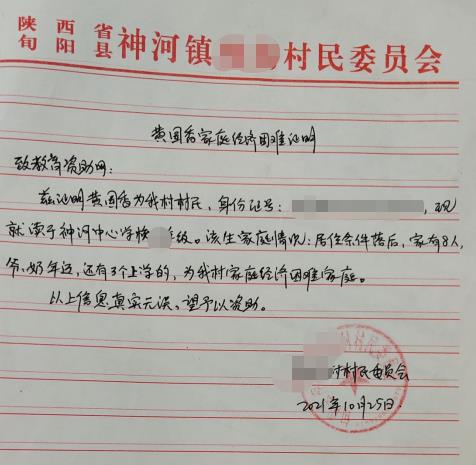 陕西省
旬阳县神河镇村民委员会
黄国香家庭经济困难证明
致教育资助网：
兹证明黄国香为我村村民，身份证号：，现
就读于神河中心学校年级。该生家庭情况：居住条件落后，家有8人，
爷、奶年迈，还有3个上学的，为我村家庭经济困难家庭。
以上信息真实无误，望予以资助。
村村民委员会
2021年10月25日